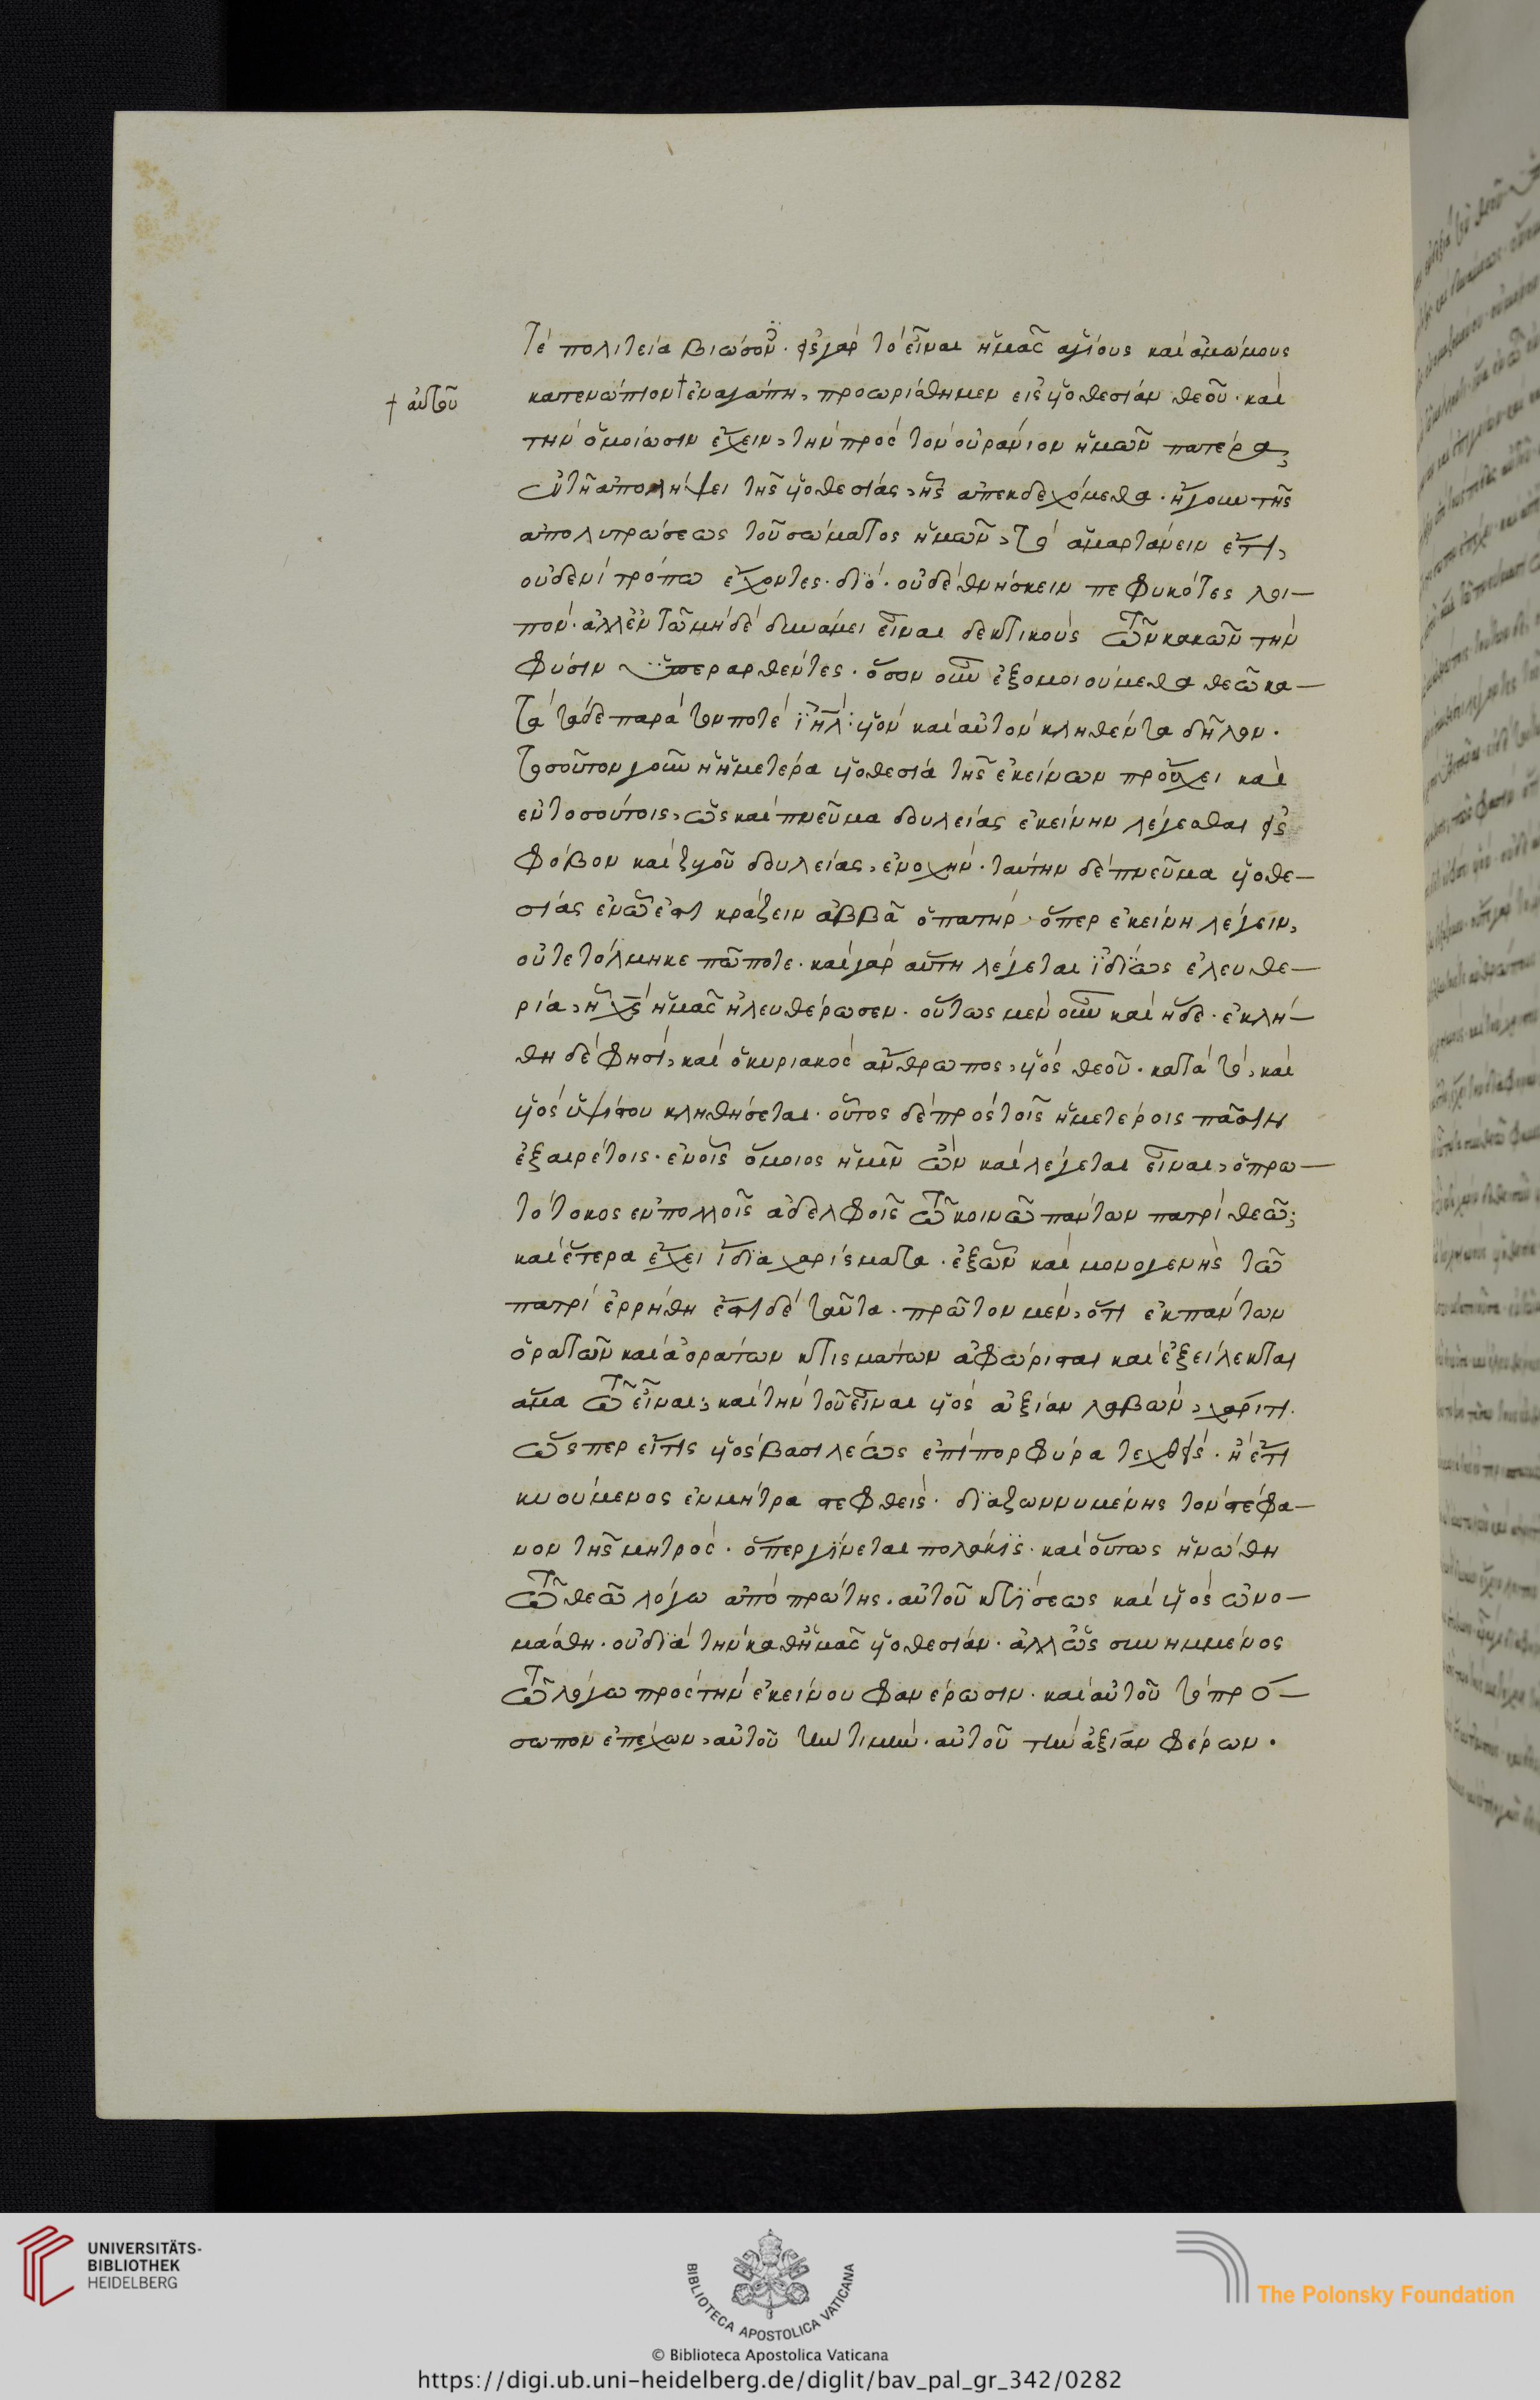 τὲ πολιτεία βιώσου. εἰς γὰρ τὸ εἶναι ἡμᾶς ἁγίους καὶ ἀμώμους
† αὐτοῦ
κατενώπιον † ἐν ἀγάπη, προωρίσθημεν εἰς υἱοθεσίαν θεοῦ. καὶ
τὴν ὁμοίωσιν ἔχειν, τὴν πρὸς τὸν οὐράνιον ἡμῶν πατέρα,
ἐν τῆ ἀπολήψει τῆς υἱοθεσίας, ἧς ἀπεκδεχόμεθα. ἤγουν τῆς
ἀπολυτρώσεως τοῦ σώματος ἡμῶν, τὸ ἁμαρτάνειν ἔτι,
οὐδενὶ τρόπω ἔχοντες. διὸ. οὐδὲ θνήσκειν πεφυκότες λοι-
πόν. ἀλλ' ἐν τῶ μὴ δὲ δυνάμει εἶναι δεκτικοὺς τῶν κακῶν τὴν
φύσιν ὑπεραρθέντες. ὅσον οὖν ἐξομοιούμεθα θεῶ κα-
τὰ τάδε παρὰ τὸν ποτὲ ιηλ: υἱὸν καὶ αὐτὸν κληθέντα δῆλον.
τοσοῦτον γοῦν ἡ ἡμετέρα υἱοθεσία τῆς ἐκείνων προὔχει καὶ
ἐν τοσούτοις, ὡς καὶ πνεῦμα δουλείας ἐκείνην λέγεσθαι εἰς
φόβον καὶ ζυγοῦ δουλείας, ἐνοχήν. ταύτην δὲ πνεῦμα υἱοθε-
σίας ἐν ὧ ἐστι κράζειν ἀββᾶ ὁ πατήρ. ὅπερ ἐκείνη λέγειν,
οὔτε τόλμηκε πώποτε. καὶ γὰρ αὕτη λέγεται ἰδίως ἐλευθε-
ρία, ἧ χς ἡμᾶς ἠλευθέρωσεν. οὕτως μὲν οὖν καὶ ἥδε. ἐκλή-
θη δέ φησὶ, καὶ ὁ κυριακὸς ἄνθρωπος, υἱὸς θεοῦ. κατὰ τὸ, καὶ
υἱὸς ὑψίστου κληθήσεται. οὗτος δὲ πρὸς τοῖς ἡμετέροις πᾶσιν
ἐξαιρέτοις. ἐν οἷς ὅμοιος ἡμῖν ὢν καὶ λέγεται εἶναι, ὁ πρω-
τότοκος ἐν πολλοῖς ἀδελφοῖς τῶ κοινῶ πάντων πατρὶ θεῶ;
καὶ ἕτερα ἔχει ἴδια χαρίσματα. ἐξ ὧν καὶ μονογενὴς τῶ
πατρὶ ἐρρήθη ἐστὶ δὲ ταῦτα. πρῶτον μὲν, ὅτι ἐκ πάντων
ὁρατῶν καὶ ἀοράτων κτισμάτων ἀφώρισται καὶ ἐξείλεκται
ἅμα τῶ εἶναι, καὶ τὴν τοῦ εἶναι υἱὸς ἀξίαν λαβὼν, χάριτι.
ὥσπερ εἴ τις υἱὸς βασιλέως ἐπὶ πορφύρα τεχθεὶς. ἢ ἔτι
κυούμενος ἐν μήτρα στεφθείς. διαζωννυμένης τὸν στέφα-
νον τῆς μητρὸς. ὅπερ γίνεται πολάκις. καὶ οὕτως ἡνώθη
τῶ θεῶ λόγω ἀπὸ πρώτης. αὐτοῦ κτίσεως καὶ υἱὸς ὠνο-
μάσθη. οὐ διὰ τὴν καθ' ἡμᾶς υἱοθεσίαν. ἀλλ' ὡς συνημμένος
τῶ λόγω πρὸς τὴν ἐκείνου φανέρωσιν. καὶ αὐτοῦ τὸ πρό-
σωπον ἐπέχων, αὐτοῦ τὴν τιμὴν. αὐτοῦ τὴν ἀξίαν φέρων.
UNIVERSITÄTS-
BIBLIOTHEK
HEIDELBERG
BIBLIOTECA APOSTOLICA VATICANA
The Polonsky Foundation
© Biblioteca Apostolica Vaticana
https://digi.ub.uni-heidelberg.de/diglit/bav_pal_gr_342/0282